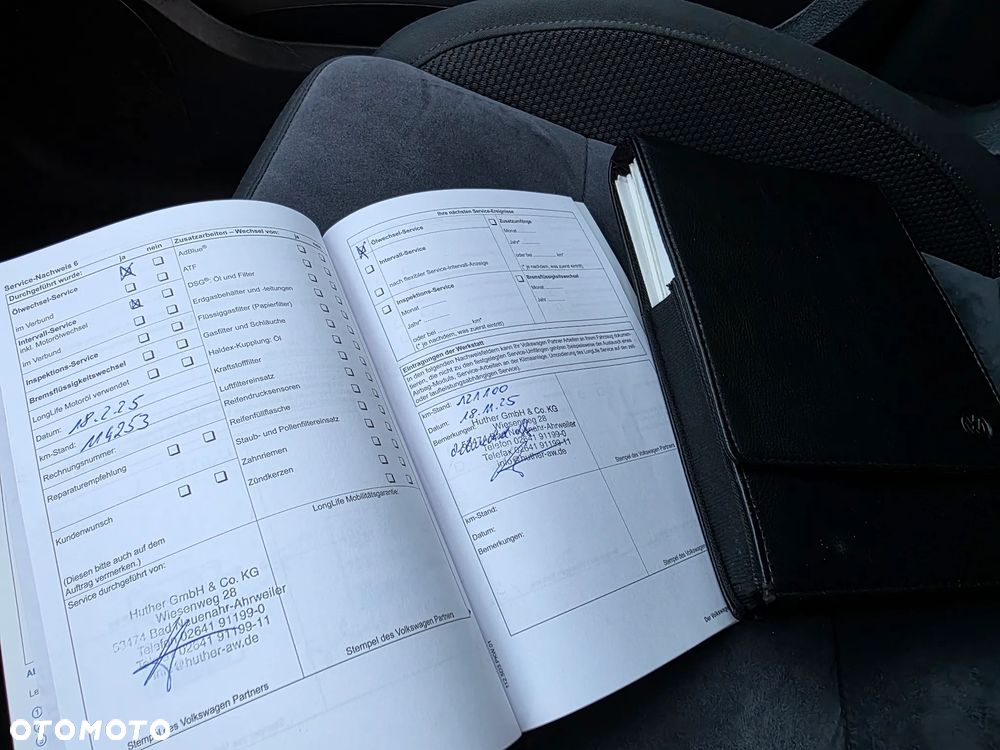 Service-Nachweis 6
Durchgeführt wurde:
ja
nein
Ölwechsel-Service
im Verbund
Intervall-Service
inkl. Motorölwechsel
im Verbund
Inspektions-Service
Bremsflüssigkeitswechsel
LongLife Motoröl verwendet
Datum: 18.2.25
km-Stand: 114253
Rechnungsnummer:
Reparaturempfehlung
Kundenwunsch
(Diesen bitte auch auf dem
Auftrag vermerken.)
Service durchgeführt von:
Huther GmbH & Co. KG
Wiesenweg 28
53474 Bad Neuenahr-Ahrweiler
Telefon 02641 91199-0
Telefax 02641 91199-11
info@huther-aw.de
Stempel des Volkswagen Partners
Zusatzarbeiten – Wechsel von:
ja
AdBlue®
ATF
DSG®: Öl und Filter
Erdgasbehälter und -leitungen
Flüssiggasfilter (Papierfilter)
Gasfilter und Schläuche
Haldex-Kupplung: Öl
Kraftstofffilter
Luftfiltereinsatz
Reifendrucksensoren
Reifenfüllflasche
Staub- und Pollenfiltereinsatz
Zahnriemen
Zündkerzen
LongLife Mobilitätsgarantie:
Stempel des Volkswagen Partners
Ihre nächsten Service-Ereignisse
Ölwechsel-Service
Intervall-Service
nach flexibler Service-Intervall-Anzeige
Inspektions-Service
Monat
Jahr*
oder bei km*
(* je nachdem, was zuerst eintritt)
Zusatzumfänge
Monat
Jahr*
oder bei km*
(* je nachdem, was zuerst eintritt)
Bremsflüssigkeitswechsel
Monat
Jahr
Eintragungen der Werkstatt
In den folgenden Nachweisfeldern kann Ihr Volkswagen Partner Arbeiten an Ihrem Fahrzeug dokumen-
tieren, die nicht zu den festgelegten Service-Umfängen gehören (beispielsweise den Austausch eines
Airbag-Moduls, Service-Arbeiten an der Klimaanlage, Umcodierung des LongLife Service auf den zeit-
oder laufleistungsabhängigen Service).
km-Stand: 121100
Datum: 18.11.25
Bemerkungen:
Huther GmbH & Co. KG
Wiesenweg 28
Neuenahr-Ahrweiler
Telefon 02641 91199-0
Telefax 02641 91199-11
info@huther-aw.de
Stempel des Volkswagen Partners
km-Stand:
Datum:
Bemerkungen:
Stempel des Volkswagen
Der Volkswagen
OTOMOTO